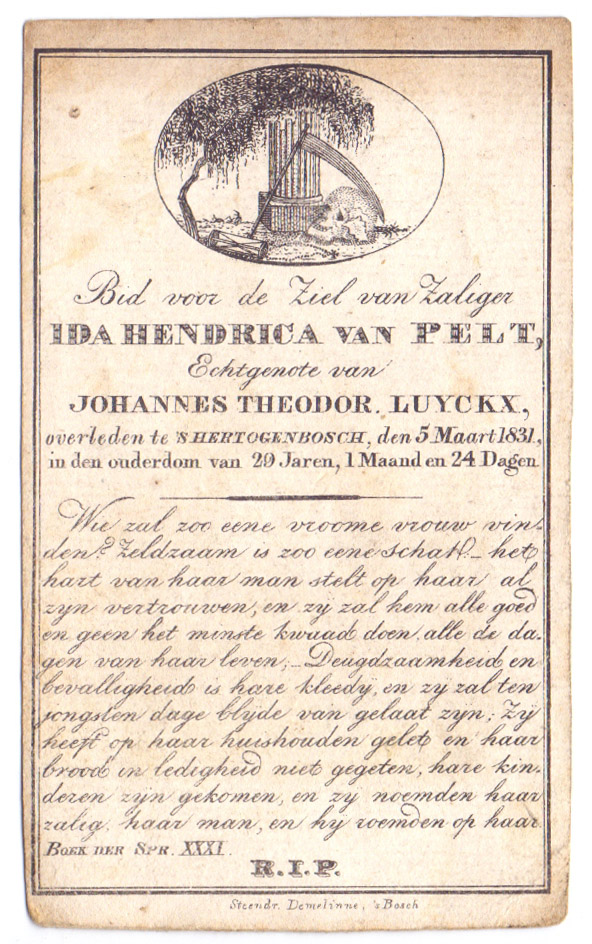 Bid voor de Ziel van Zaliger
IDA HENDRICA VAN PELT,
Echtgenote van
JOHANNES THEODOR. LUYCKX,
overleden te 'S HERTOGENBOSCH, den 5 Maart 1831,
in den ouderdom van 29 Jaren, 1 Maand en 24 Dagen
Wie zal zoo eene vroome vrouw vin-
den? Zeldzaam is zoo eene schat! _ het
hart van haar man stelt op haar al
zyn vertrouwen, en zy zal hem alle goed
en geen het minste kwaad doen, alle de da-
gen van haar leven; _ Deugdzaamheid en
bevalligheid is hare kleedy, en zy zal ten
jongsten dage blyde van gelaat zyn; Zy
heeft op haar huishouden gelet en haar
brood in ledigheid niet gegeten, hare kin-
deren zyn gekomen, en zy noemden haar
zalig, haar man, en hy roemden op haar
BOEK DER SPR. XXXI.
R.I.P.
Steendr. Demelinne, 's Bosch